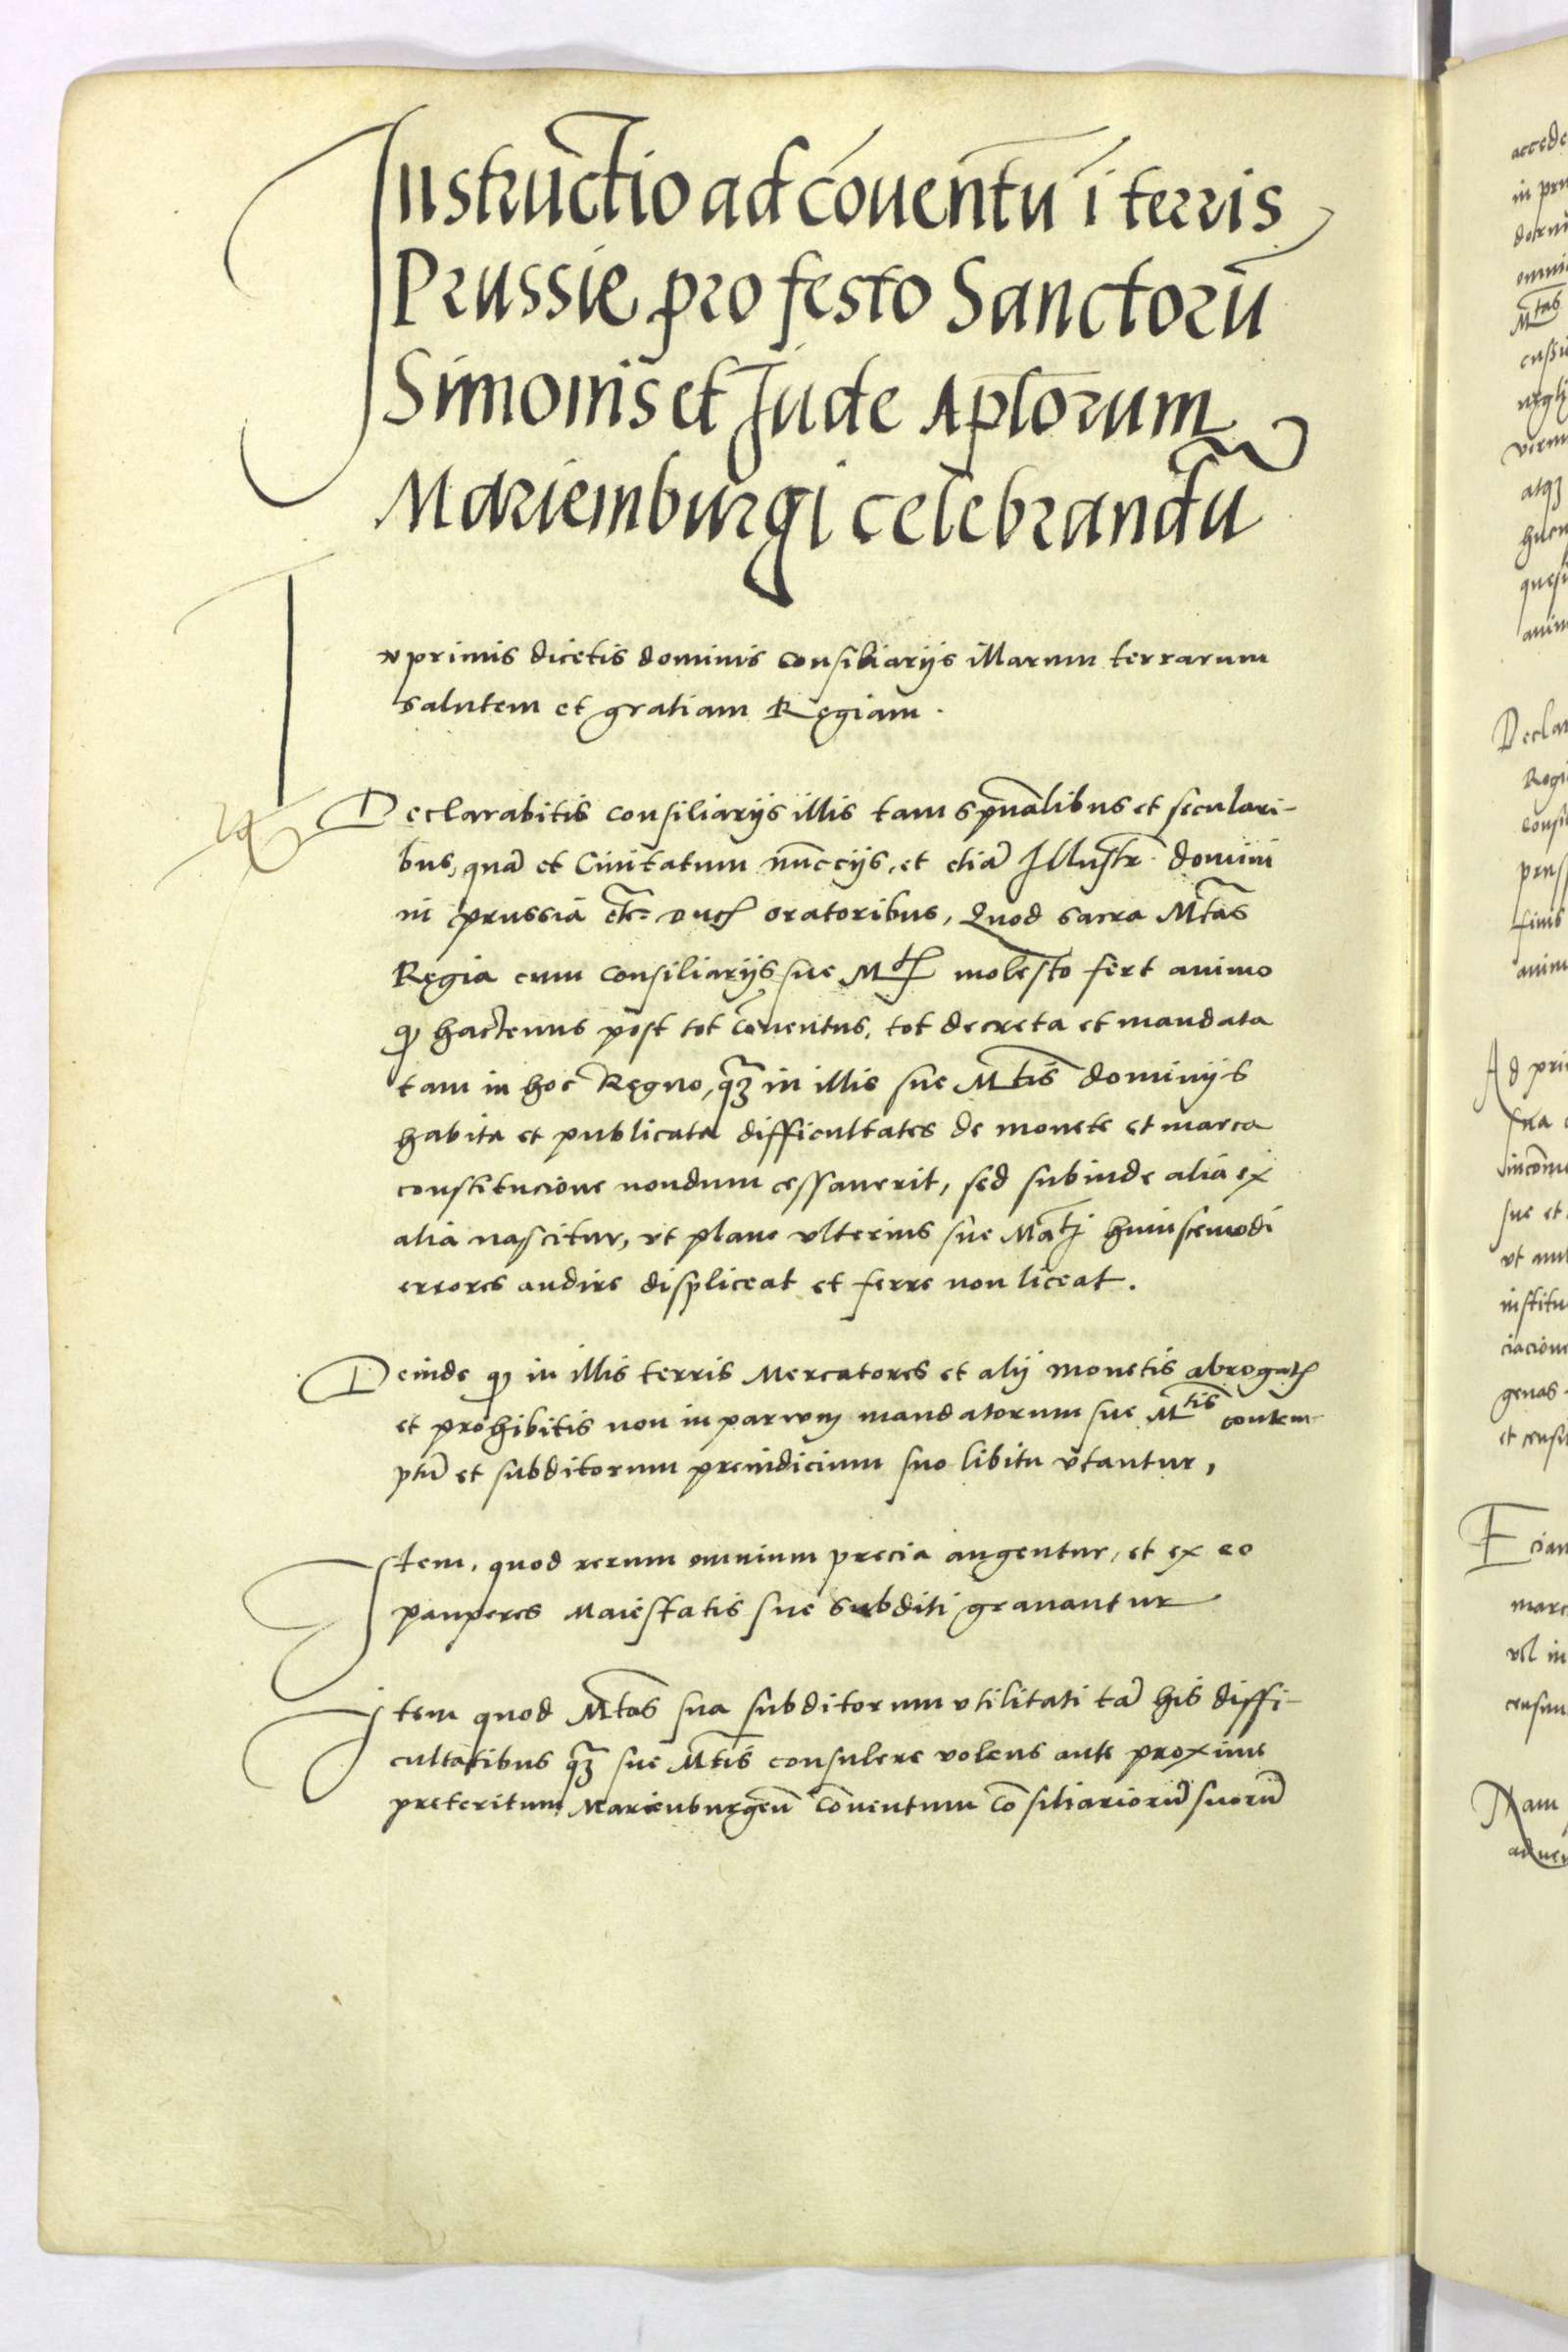 Instructio ad cōuentū ī terris
Prussie pro festo Sanctorū
Simonis et Jude Apl̄orum
Mariemburgi celebrandū
Inprimis dicetis dominis consiliarijs illarum terrarum
salutem et gratiam Regiam.
Declarabitis consiliarijs illis tam sp̄ualibus et seculari-
bus, quā et Ciuitatum nūccijs, et etiā Illustr. domini
in prussia etc= ducꝭ oratoribus, Quod sacra Mt̄as
Regia cum consiliarijs sue Mtꝭ molesto fert animo
ꝙ hactenus post tot cōuentus, tot decreta et mandata
tam in hoc Regno, qꝫ̄ in illis sue Mt̄is dominijs
habita et publicata difficultates de monete et marca
constitucione nondum cessauerit, sed subinde alia ex
alia nascitur, vt plane vlterius sue Mat̄j huiuscemodi
errores audire displiceat et ferre non liceat.
Deinde ꝙ in illis terris Mercatores et alij monetis abrogatꝭ
et prohibitis non in paruum mandatorum sue Mtis contem-
ptū et subditorum preiudicium suo libitu vtantur,
Item, quod rerum omnium precia augentur, et ex eo
pauperes Maiestatis sue subditi grauantur
Item quod Mt̄as sua subditorum vtilitati tā his diffi-
cultatibus qꝫ̄ sue Mt̄is consulere volens ante proxime
preteritum Marienburgeñ cōuentum cōsiliariorū suorū
accede
in pru
omni
Mtas
negli
atqꝫ
quesi
anim
Declar
Regi
consi
pruss
finis
anim
Ad pri
sua
sue et
vt
institu
ciacione
genas
et
Ecian
marc
vel in
Nam